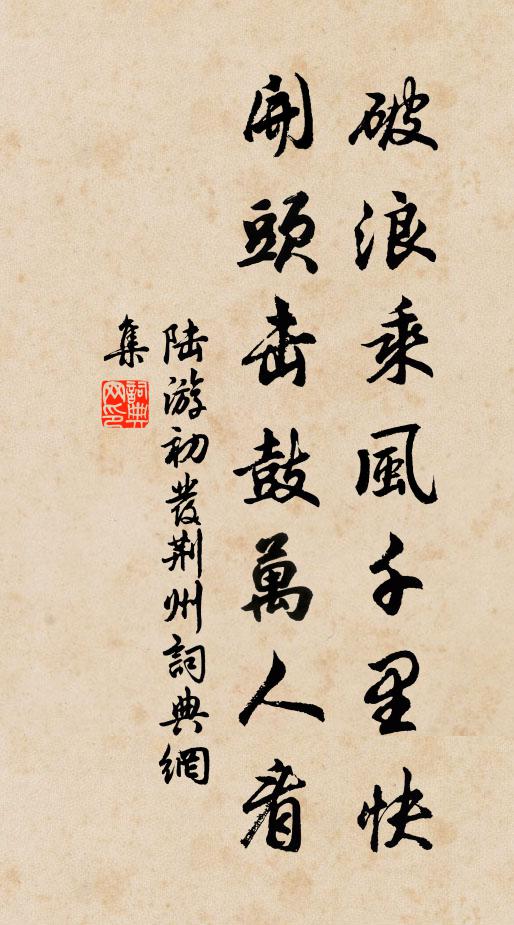 破浪乘風千里快
開頭击鼓萬人看
陆游初發荆州詞典網
集
詞典
网印